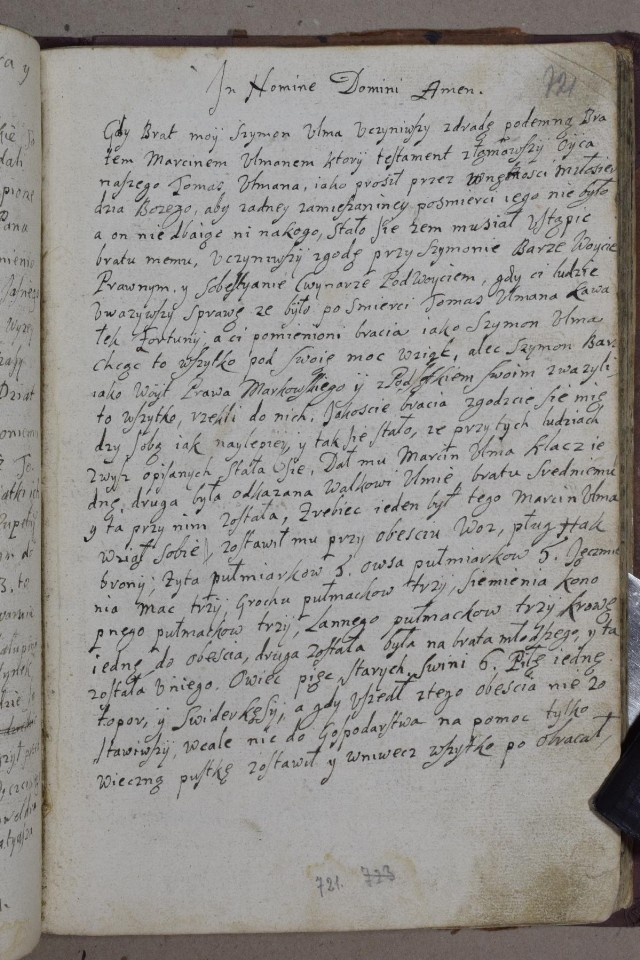 721
In Nomine Domini Amen.
Gdy Brat moy Szymon Ulma Uczyniwszy zdradę podemną Bra
tem Marcinem Ulmanem ktory testament złamowszy Oyca
naszego Tomas Ulmana, iako prosił przez wnętrzności miłosier
dzia Bozego, aby zadney zamieszaniny posmierci iego nie było
a on nie dbaięc ni nakogo, stało się zem musiał Ustąpic
bratu memu, Uczyniwszy zgodę przy Szymonie Barze Woycie
Prawnym, y Sobestyanie Cwynarze PodWoyciem, gdy ci ludzie
Uwazywszy Sprawę ze było po Smierci Tomas Ulmana Kawa
łek Fortuny a ci pomienioni bracia iako Szymon Ulma
chcęc to wszytko pod swoię moc wziąć, alec Szymon Barz
iako Woyt Prawa Markowskiego y z swoim zwazyli
to wszytko, rzekli do nich, Jakoscie bracia zgodzcie się mię
dzy sobą iak naylepiey, y tak się stało, ze przytych ludziach
Zwysz opisanych stała się, Dał mu Marcin Ulma klacz ie
dnę, druga była odkazana Walkowi Ulmie bratu średniemu
y ta przy nim została, Zrebiec ieden był tego Marcin Ulma
wziął Sobie, zostawił mu przy obesciu Woz, pług Hak
brony, Zyta pułmiarkow 5. Owsa pułmiarkow 5. Jęczmie
nia Mac trzy, Grochu pułmackow trzy, siemienia kono
pnego pułmackow trzy, Lannego pułmackow trzy, krowę
iednę do obescia, druga została była na brata młodszego, y ta
została Uniego. Owiec pięc starych, swini 6. Piłę iednę
topor, y Swiderkęsy, a gdy Uszedł ztego obescia nie zo
stawiwszy, wcale nic do Gospodarstwa na pomoc tylko
wieczną pustkę zostawił y wniwecz wszytko po obracał,
721. 723